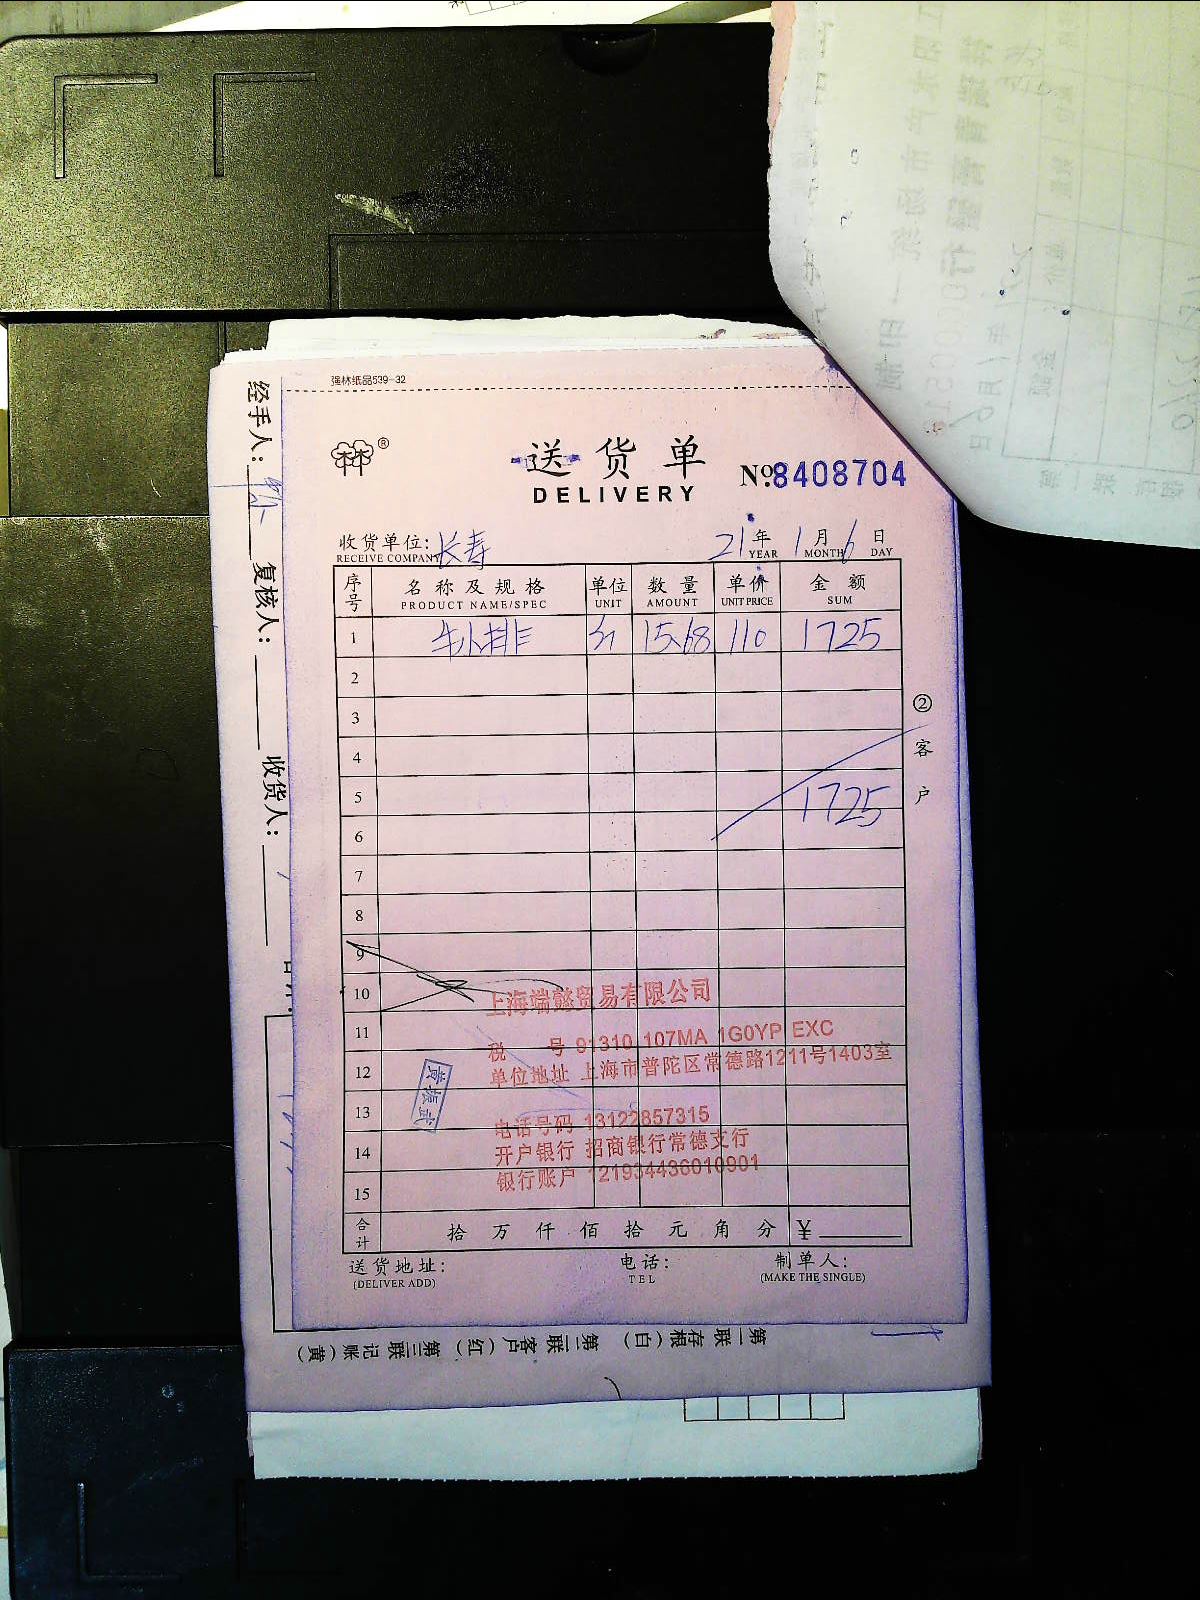 强林纸品539-32
林®
送货单
DELIVERY
No:8408704
收货单位:长寿 21年 1月 6日
RECEIVE COMPANY YEAR MONTH DAY
序号 名称及规格 单位 数量 单价 金额
PRODUCT NAME/SPEC UNIT AMOUNT UNIT PRICE SUM
1 牛小排 斤 15.68 110 1725
2
3
4
5 1725
6
7
8
9
10
11
12
13
14
15
②客户
上海端懿贸易有限公司
税 号 91310 107MA 1G0YP EXC
单位地址 上海市普陀区常德路1211号1403室
电话号码 13122857315
开户银行 招商银行常德支行
银行账户 121934436010901
合计 拾 万 仟 佰 拾 元 角 分 ¥
送货地址: 电话: 制单人:
(DELIVER ADD) TEL (MAKE THE SINGLE)
经手人: 复核人: 收货人:
第一联 存根(白) 第二联 客户(红) 第三联 记账(黄)